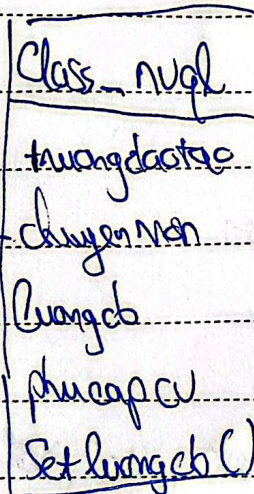 Class_nvql
truongdaotao
chuyenmon
luongcb
phucapcv
Set luongcb ()